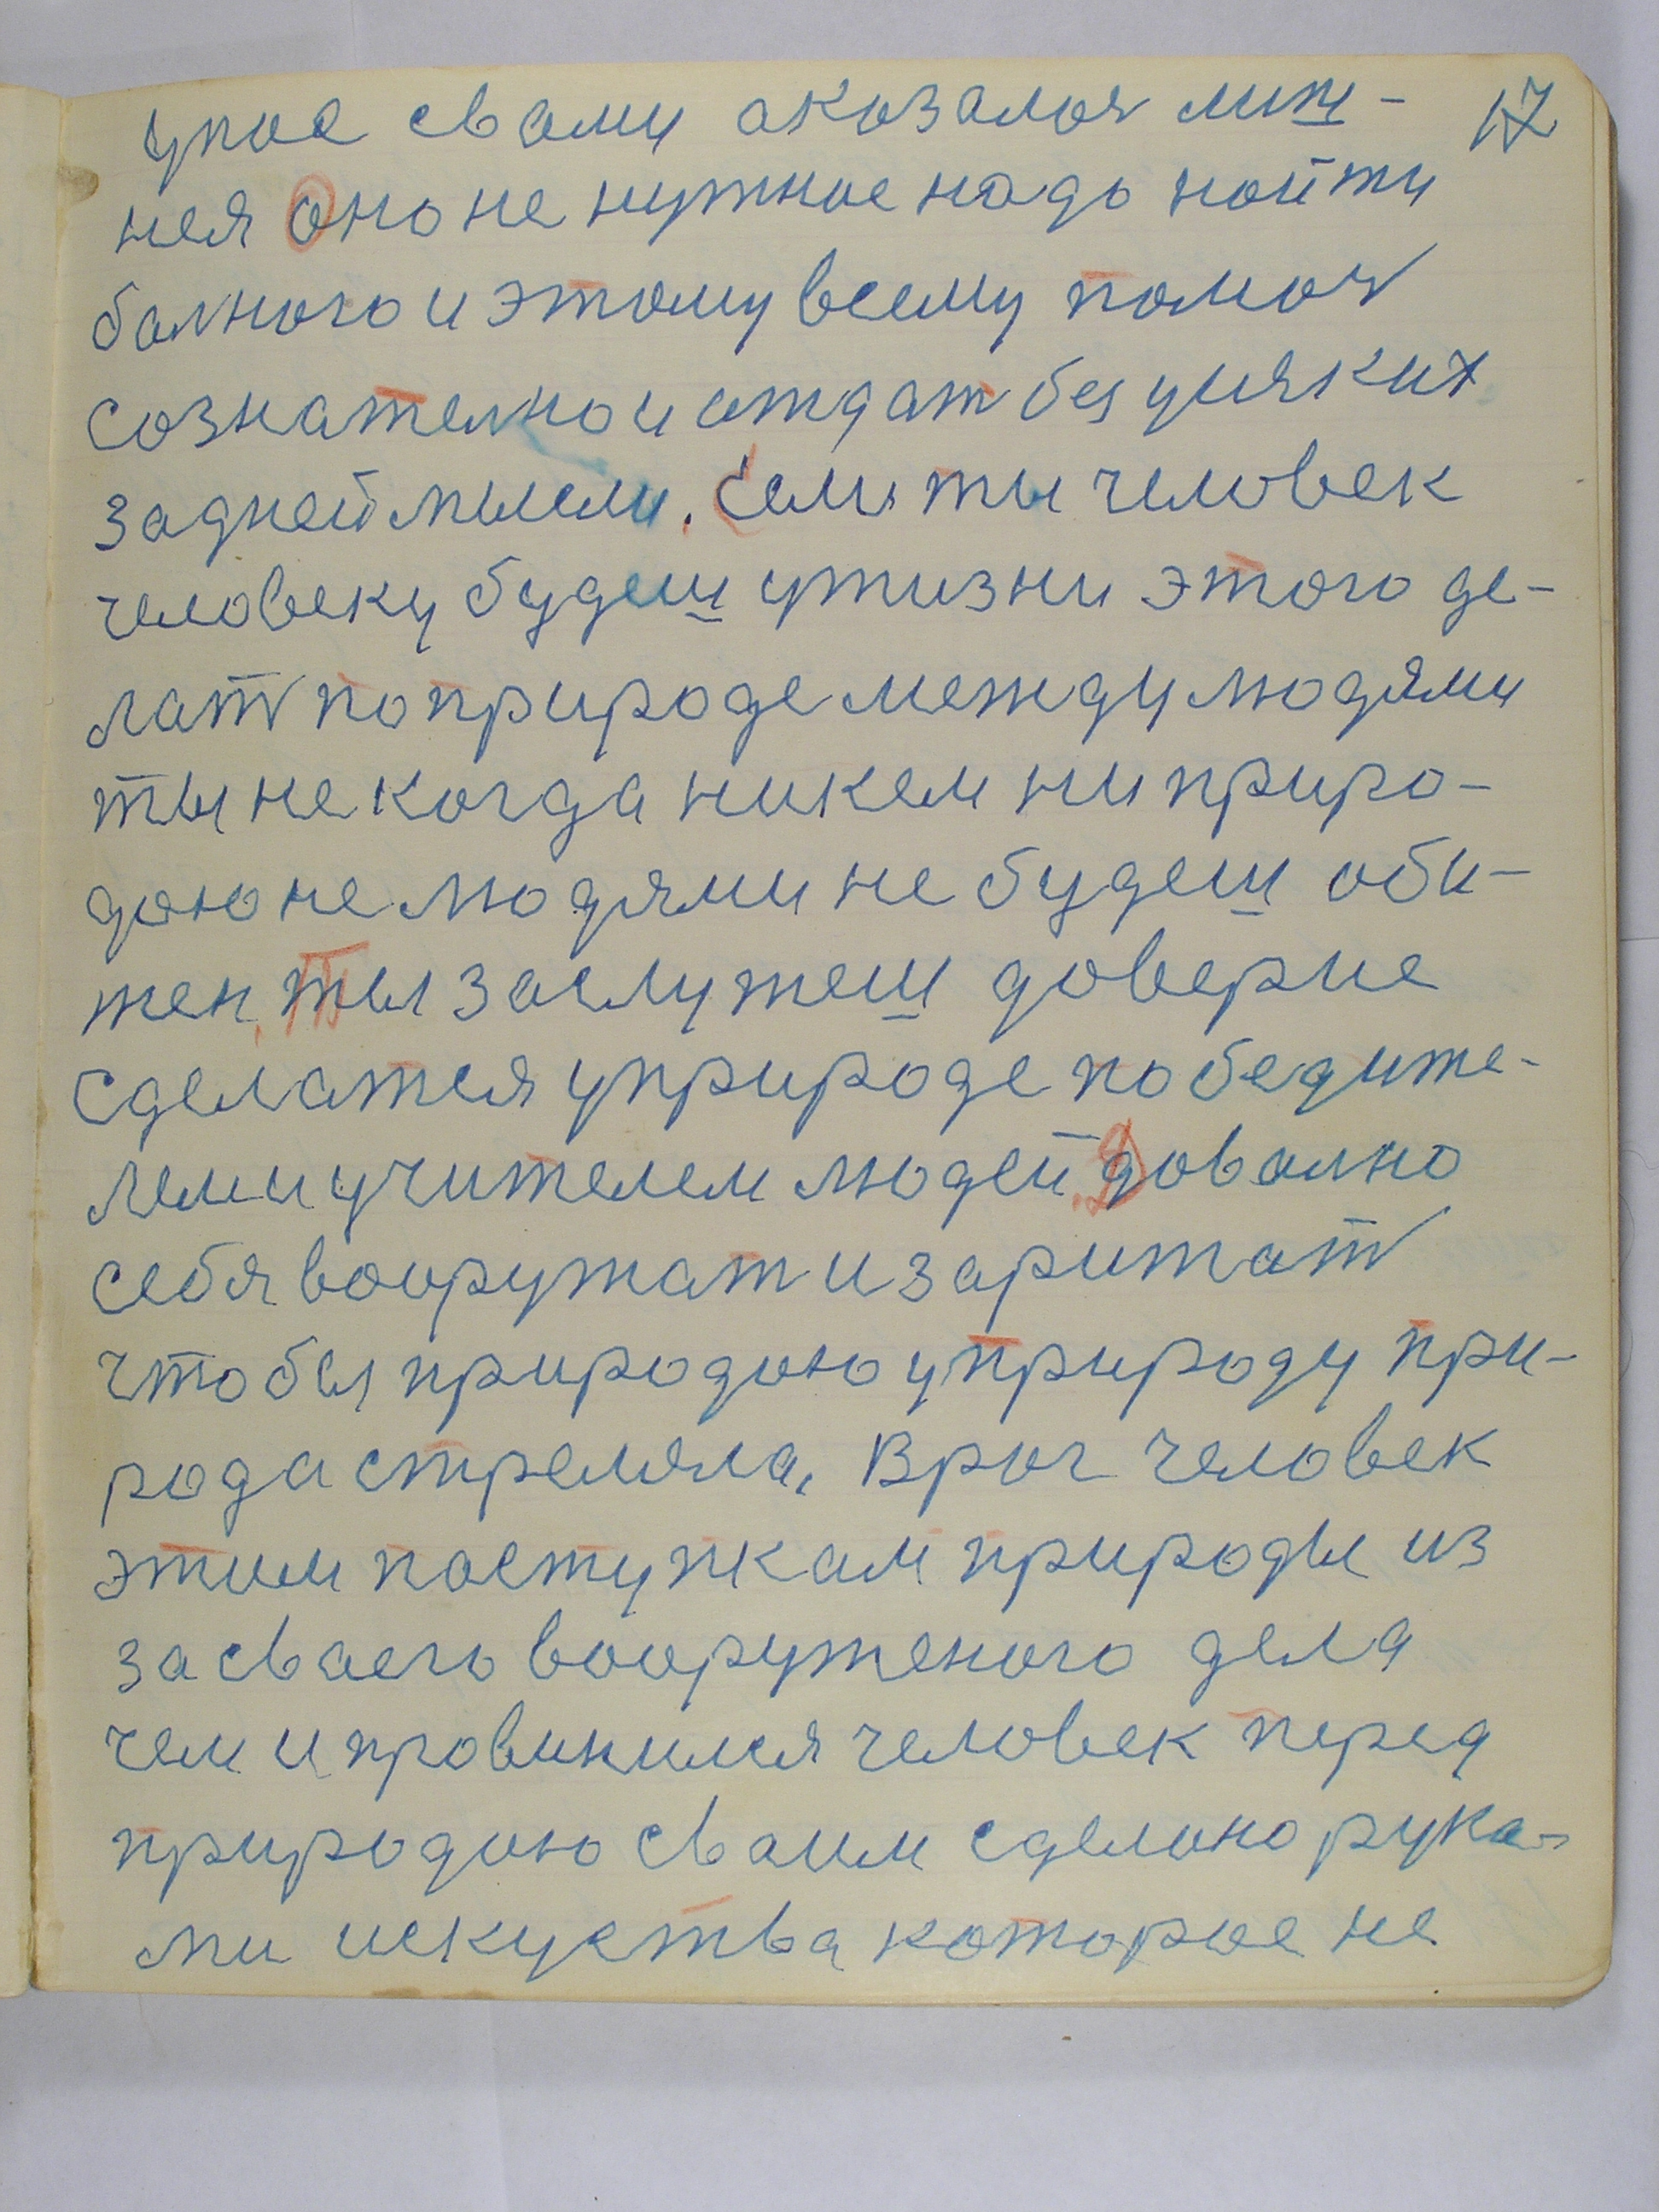 упас свами аказалоя лиш- 17
нея оно не нужнае надо найти
балного и этому всему помоч
сознателно и отдат без усяких
задней мысли. Если ты человек
человеку будеш ужизни этого де-
лат поприроде между людями
ты не когда никем ни приро-
дою не людями не будеш оби-
жен. Ты заслужеш доверие
сделатся уприроде победите-
лем и учителем людей. Доволно
себя вооружат и заряжат
чтобы природою уприроду при-
рода стреляла, Врач человек
этим паступкам природы из
за сваего вооруженого дела
чем и провинился человек перед
природою сваим сделано рука-
ми искуства которае не